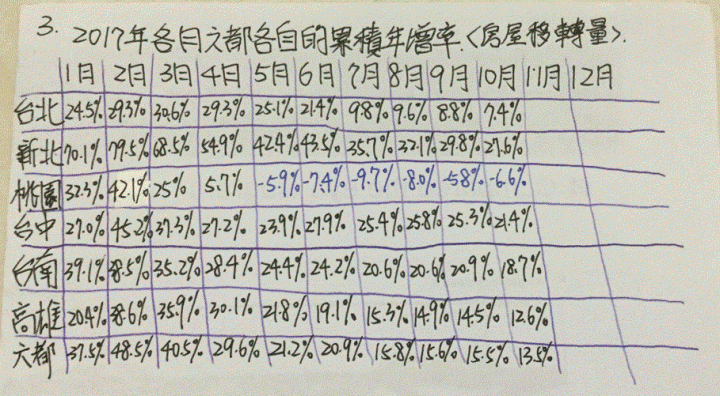 3. 2017年各月六都各自的累積年增率〈房屋移轉量〉.
1月 2月 3月 4月 5月 6月 7月 8月 9月 10月 11月 12月
台北 24.5% 29.3% 30.6% 29.3% 25.1% 21.4% 9.8% 9.6% 8.8% 7.4%
新北 70.1% 79.5% 68.5% 54.9% 42.4% 43.5% 35.7% 32.1% 29.8% 27.6%
桃園 32.3% 42.1% 25% 5.7% -5.9% -7.4% -9.7% -8.0% -5.8% -6.6%
台中 27.0% 45.2% 37.3% 27.2% 23.9% 27.9% 25.4% 25.8% 25.3% 21.4%
台南 39.1% 38.5% 35.2% 28.4% 24.4% 24.2% 20.6% 20.6% 20.9% 18.7%
高雄 20.4% 38.6% 35.9% 30.1% 21.8% 19.1% 15.3% 14.9% 14.5% 12.6%
六都 37.5% 48.5% 40.5% 29.6% 21.2% 20.9% 15.8% 15.6% 15.5% 13.5%